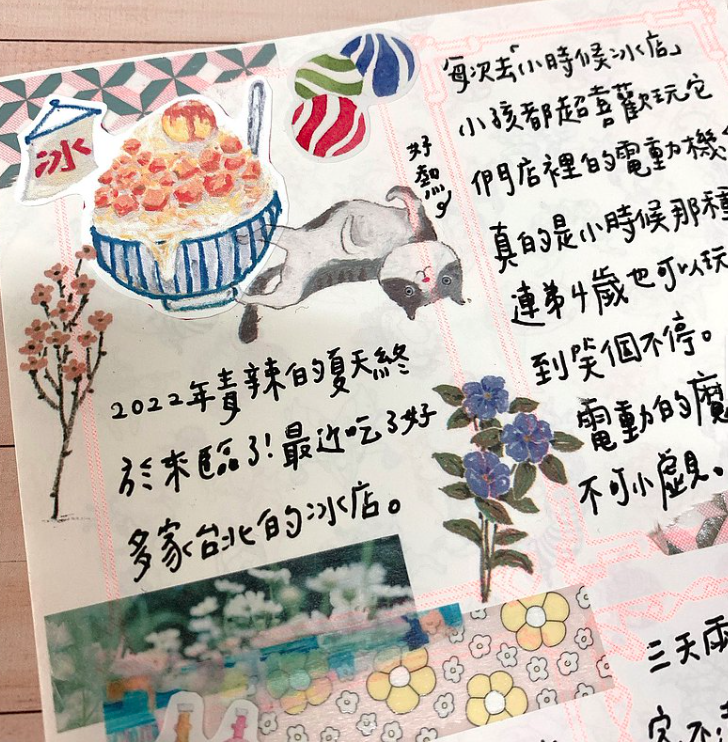 冰
好
熱
2022年青辣的夏天終
於來臨了!最近吃了好
多家台北的冰店。
每次去「小時候冰店」
小孩都超喜歡玩它
們店裡的電動機
真的是小時候那種
連弟4歲也可以玩
到笑個不停。
電動的魔
不可小覷。
三天兩